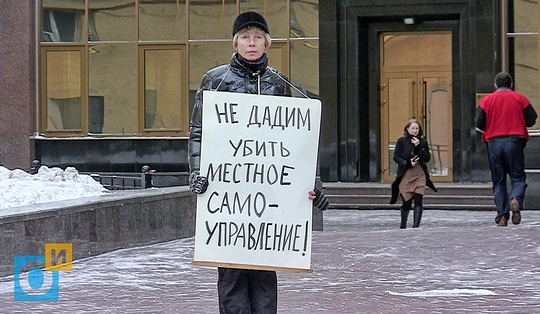 НЕ ДАДИМ
УБИТЬ
МЕСТНОЕ
САМО-
УПРАВЛЕНИЕ!
ОИ